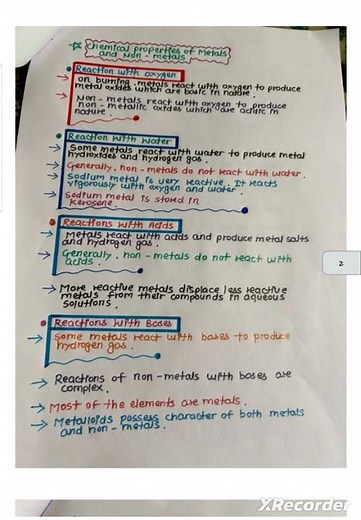 Chemical properties of Metals
and Non-metals
Reaction with oxygen
→ on burning, metals react with oxygen to produce
metal oxides which are basic in nature.
→ Non-metals react with oxygen to produce
non-metallic oxides which are acidic in
nature.
Reaction with Water
→ Some metals react with water to produce metal
hydroxides and hydrogen gas.
→ Generally, non-metals do not react with water.
→ Sodium metal is very reactive. It reacts
vigorously with oxygen and water.
→ Sodium metal is stored in
kerosene.
Reactions with Acids
→ Metals react with acids and produce metal salts
and hydrogen gas.
→ Generally, non-metals do not react with
acids.
→ More reactive metals displace less reactive
metals from their compounds in aqueous
solutions.
Reactions with Bases
→ Some metals react with bases to produce
hydrogen gas.
→ Reactions of non-metals with bases are
complex.
→ Most of the elements are metals.
→ Metalloids possess character of both metals
and non-metals.
2
XRecorder